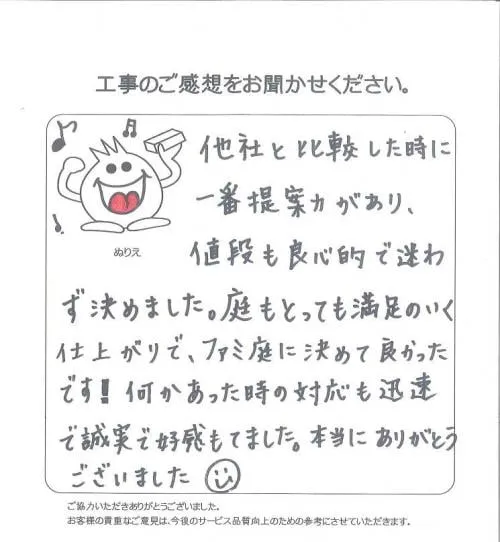 工事のご感想をお聞かせください。
他社と比較した時に
一番提案力があり、
ぬりえ
値段も良心的で迷わ
ず決めました。庭もとっても満足のいく
仕上がりで、ファミ庭に決めて良かった
です!! 何かあった時の対応も迅速
で誠実で好感もてました。本当にありがとう
ございました
ご協力いただきありがとうございました。
お客様の貴重なご意見は、今後のサービス品質向上のための参考にさせていただきます。